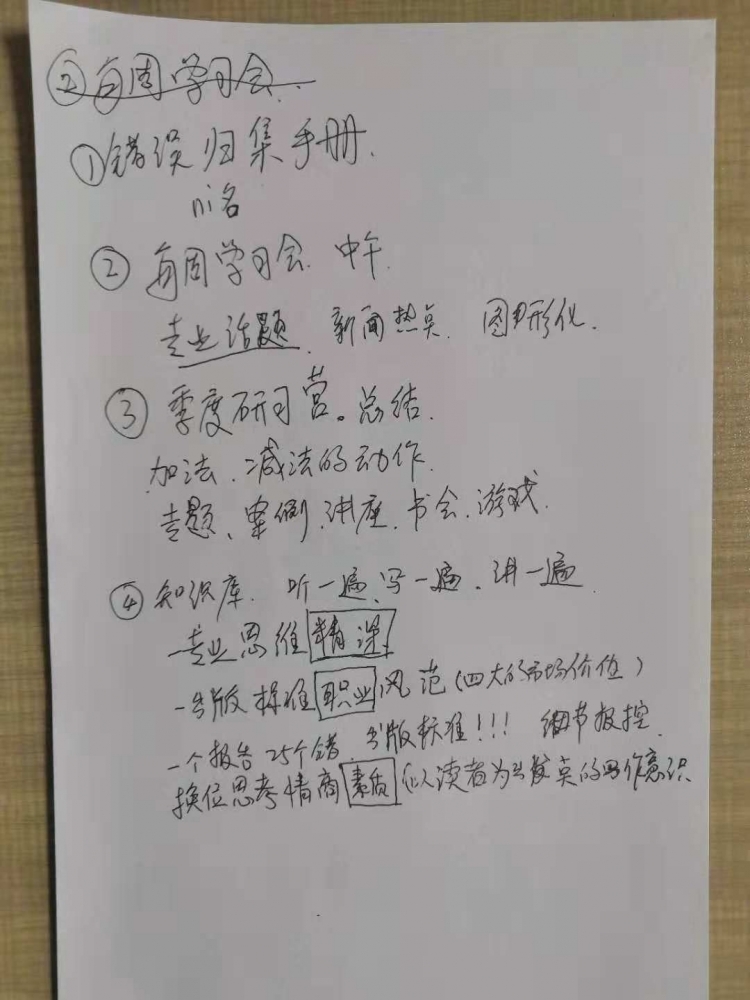 ② 每周学习会.
① 错误归集手册.
② 每周学习会. 中午.
专业话题、新闻热点. 图形化.
③ 季度研习营。总结.
加法、减法的动作.
专题、案例、讲座、书会、游戏.
④ 知识库. 听一遍、写一遍、讲一遍
专业思维 精深
出版标准 职业 风范(四大的市场价值)
一个报告25个错. 出版标准!!! 细节报控.
换位思考情商 素质 (以读者为出发点的写作意识